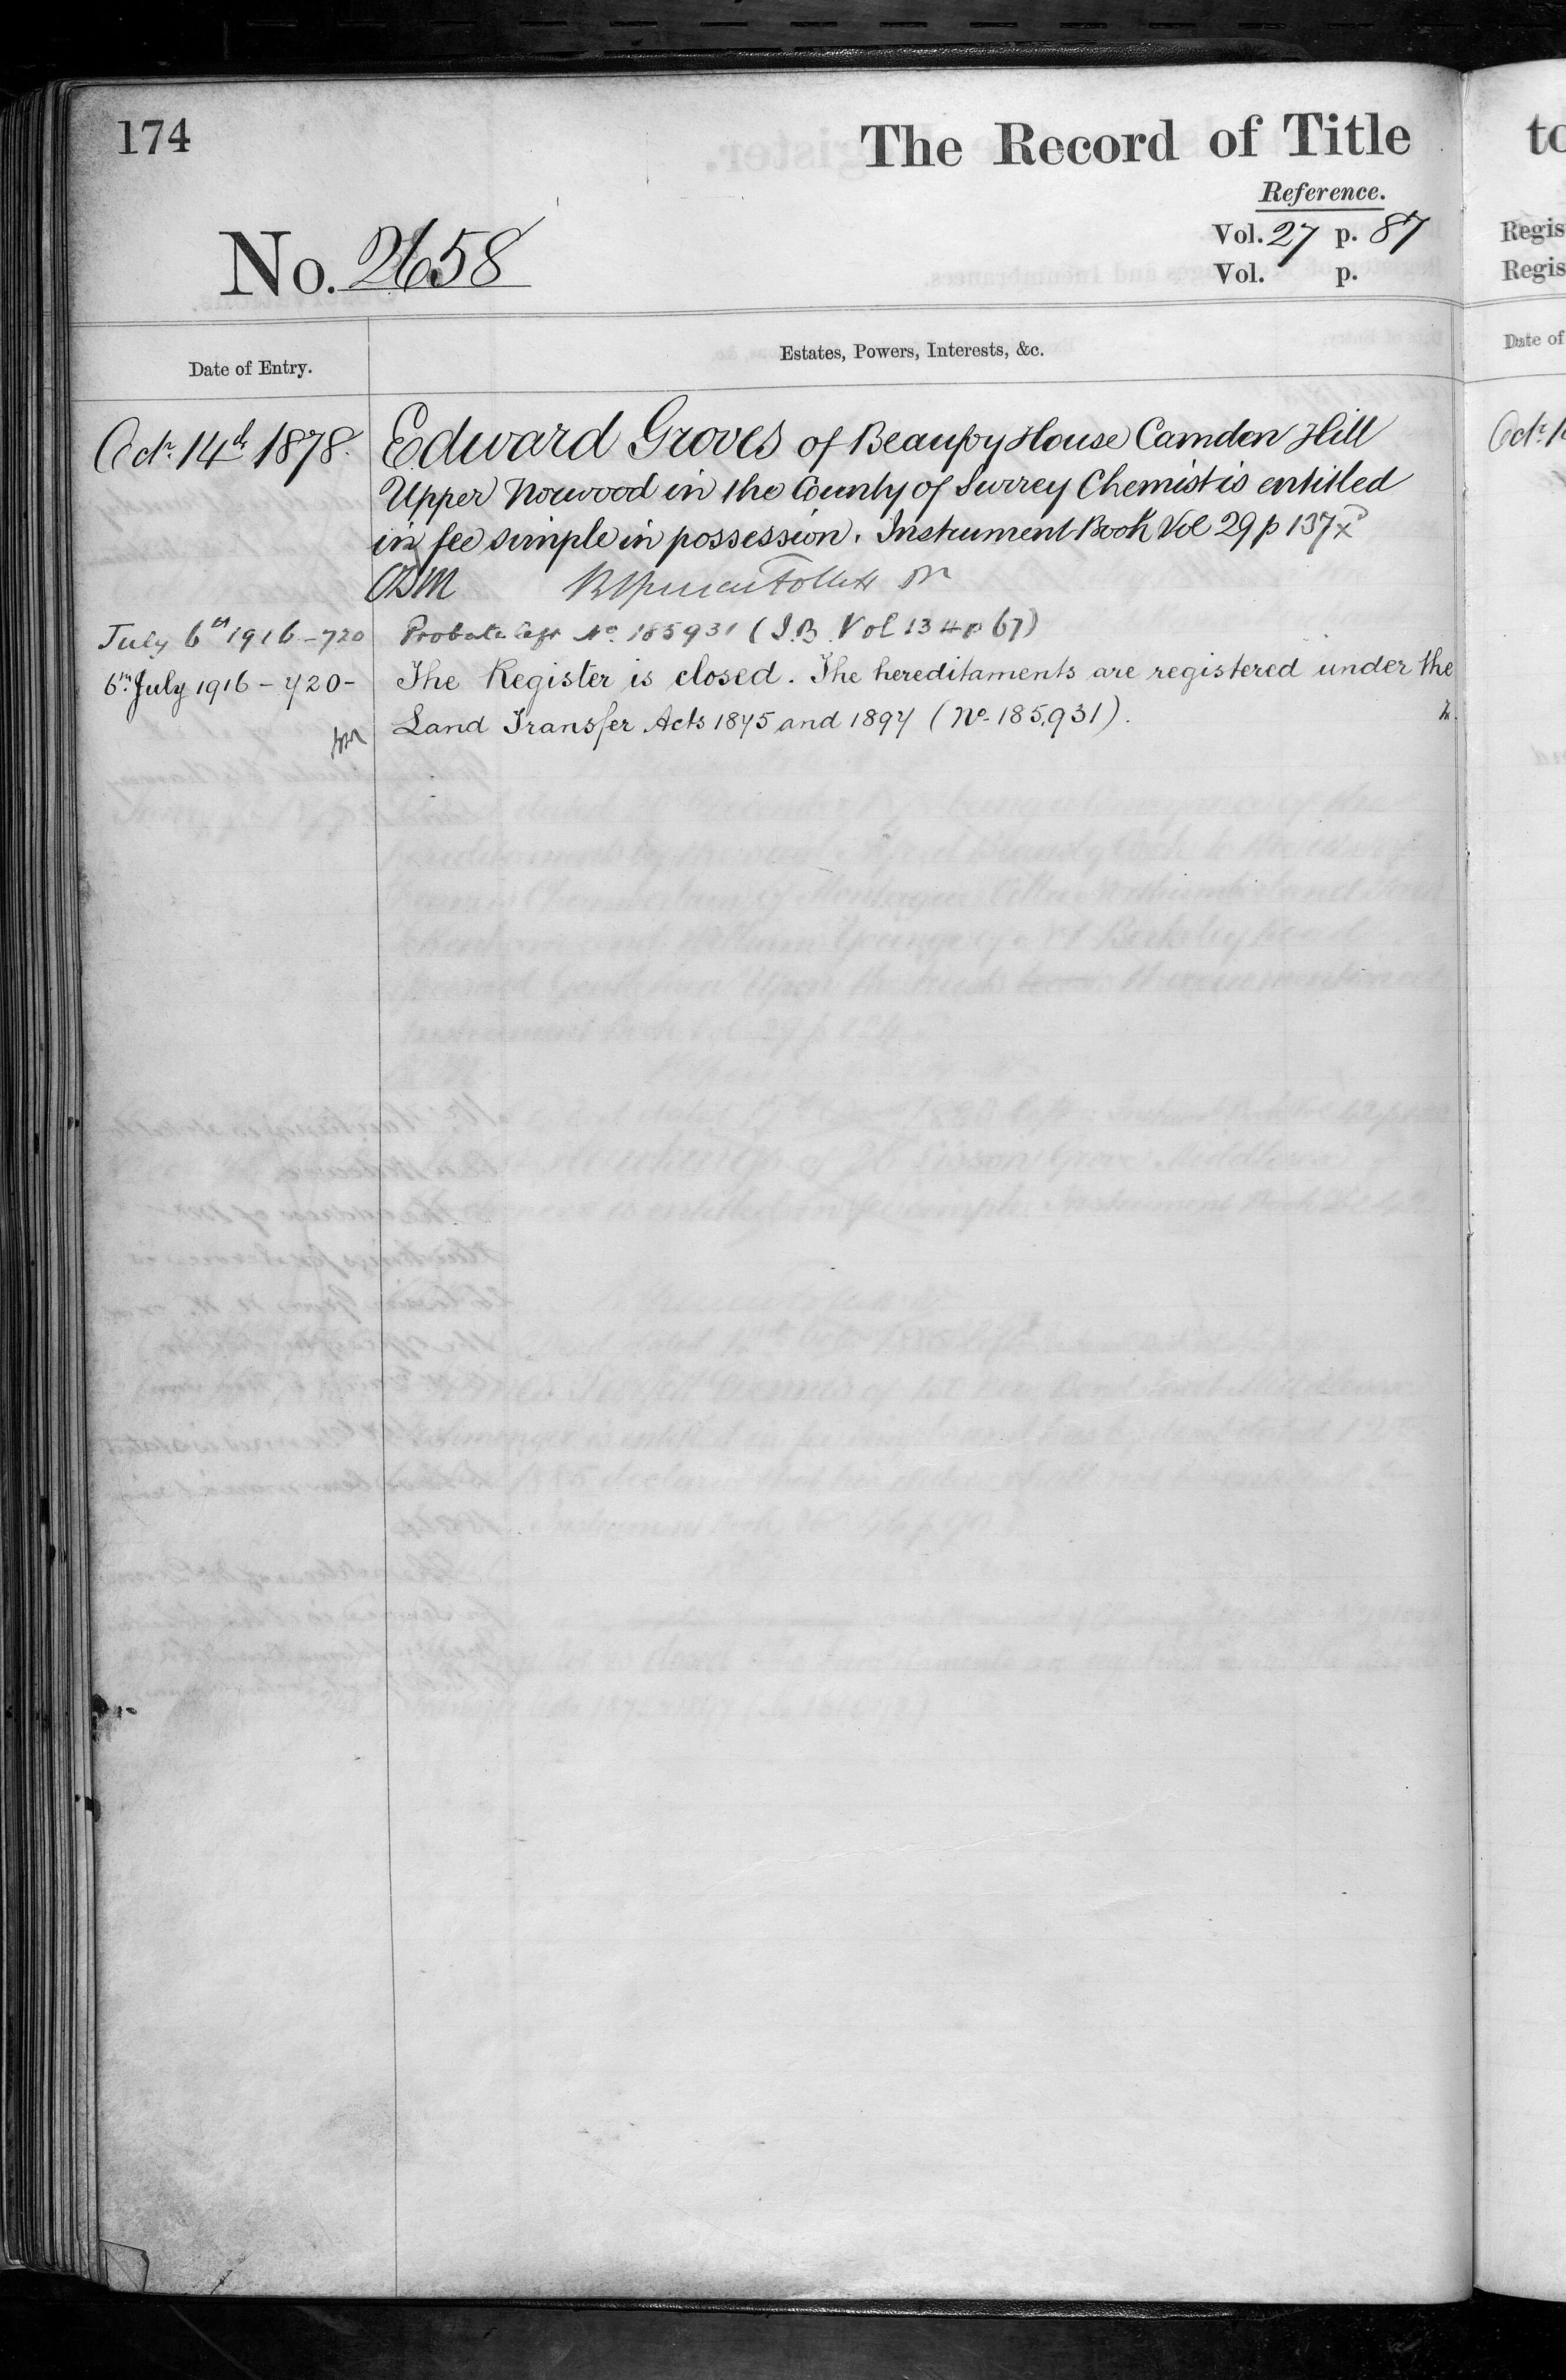 174
The Record of Title
Reference.
No. 2658
Vol. 27 p. 87
Vol. p.
Date of Entry.
Estates, Powers, Interests, &c.
Octr. 14th 1878. Edward Groves of Beaufoy House Camden Hill
Upper Norwood in the County of Surrey Chemist is entitled
in fee simple in possession. Instrument Book Vol 29 p 137
July 6th 1916 - 720 Probate left No. 185931 (I.B. Vol 134 p 67)
6th July 1916 - 720 - The Register is closed. The hereditaments are registered under the
Land Transfer Acts 1875 and 1897 (No. 185,931).
to
Regis
Regis
Date of
Octr. 1